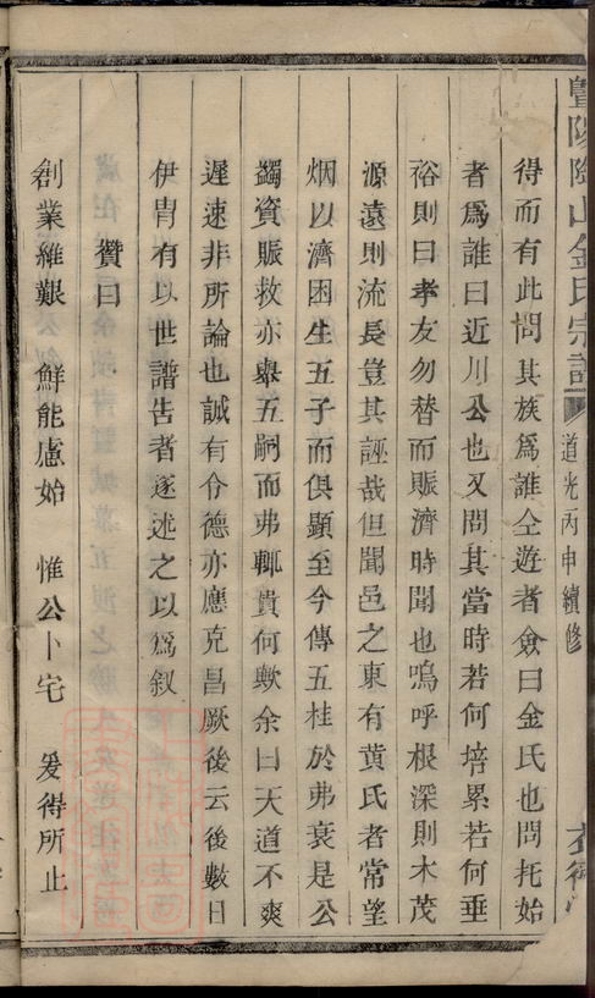 暨陽陶山金氏宗譜 道光丙申續修
得而有此問其族爲誰仝遊者僉曰金氏也問托始
者爲誰曰近川公也又問其當時若何培累若何垂
裕則曰孝友勿替而賑濟時聞也嗚呼根深則木茂
源遠則流長豈其誣哉但聞邑之東有黄氏者常望
烟以濟困生五子而俱顯至今傳五桂於弗衰是公
蠲資賑救亦舉五嗣而弗輒貴何歟余曰天道不爽
遲速非所論也誠有令德亦應克昌厥後云後數日
伊胄有以世譜告者遂述之以爲叙
贊曰
創業維艱 鮮能慮始 惟公卜宅 爰得所止